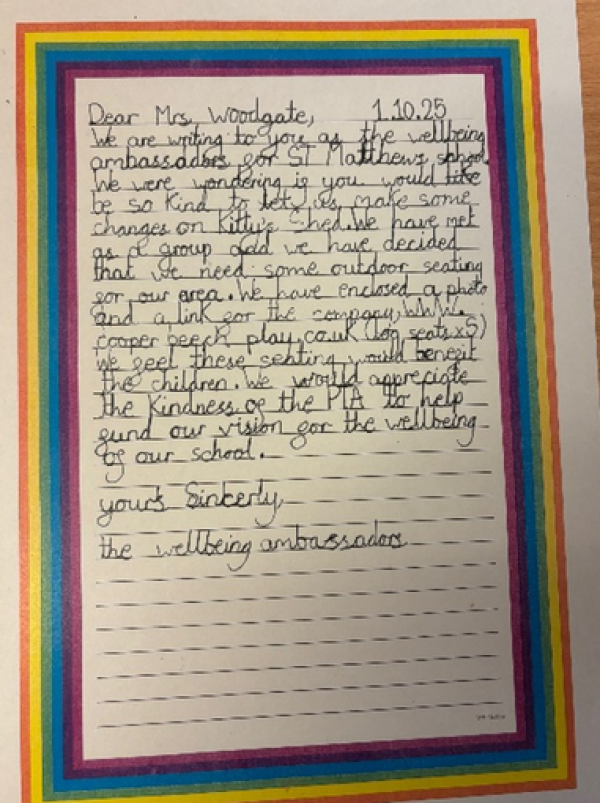 Dear Mrs, Woodgate, 1.10.25
We are writing to you as the wellbeing
ambassadors for ST Matthews school.
We were wondering if you would like
be so kind to let us make some
changes on Kitty's Shed. We have met
as a group and we have decided
that we need some outdoor seating
for our area. We have enclosed a photo
and a link for the company, WWW.
cooper beech play.co.uk (log seats x5)
we feel these seating would benefit
the children. We would appreciate
the kindness of the PTA to help
fund our vision for the wellbeing
of our school.
yours Sinkerly
the wellbeing ambassadors